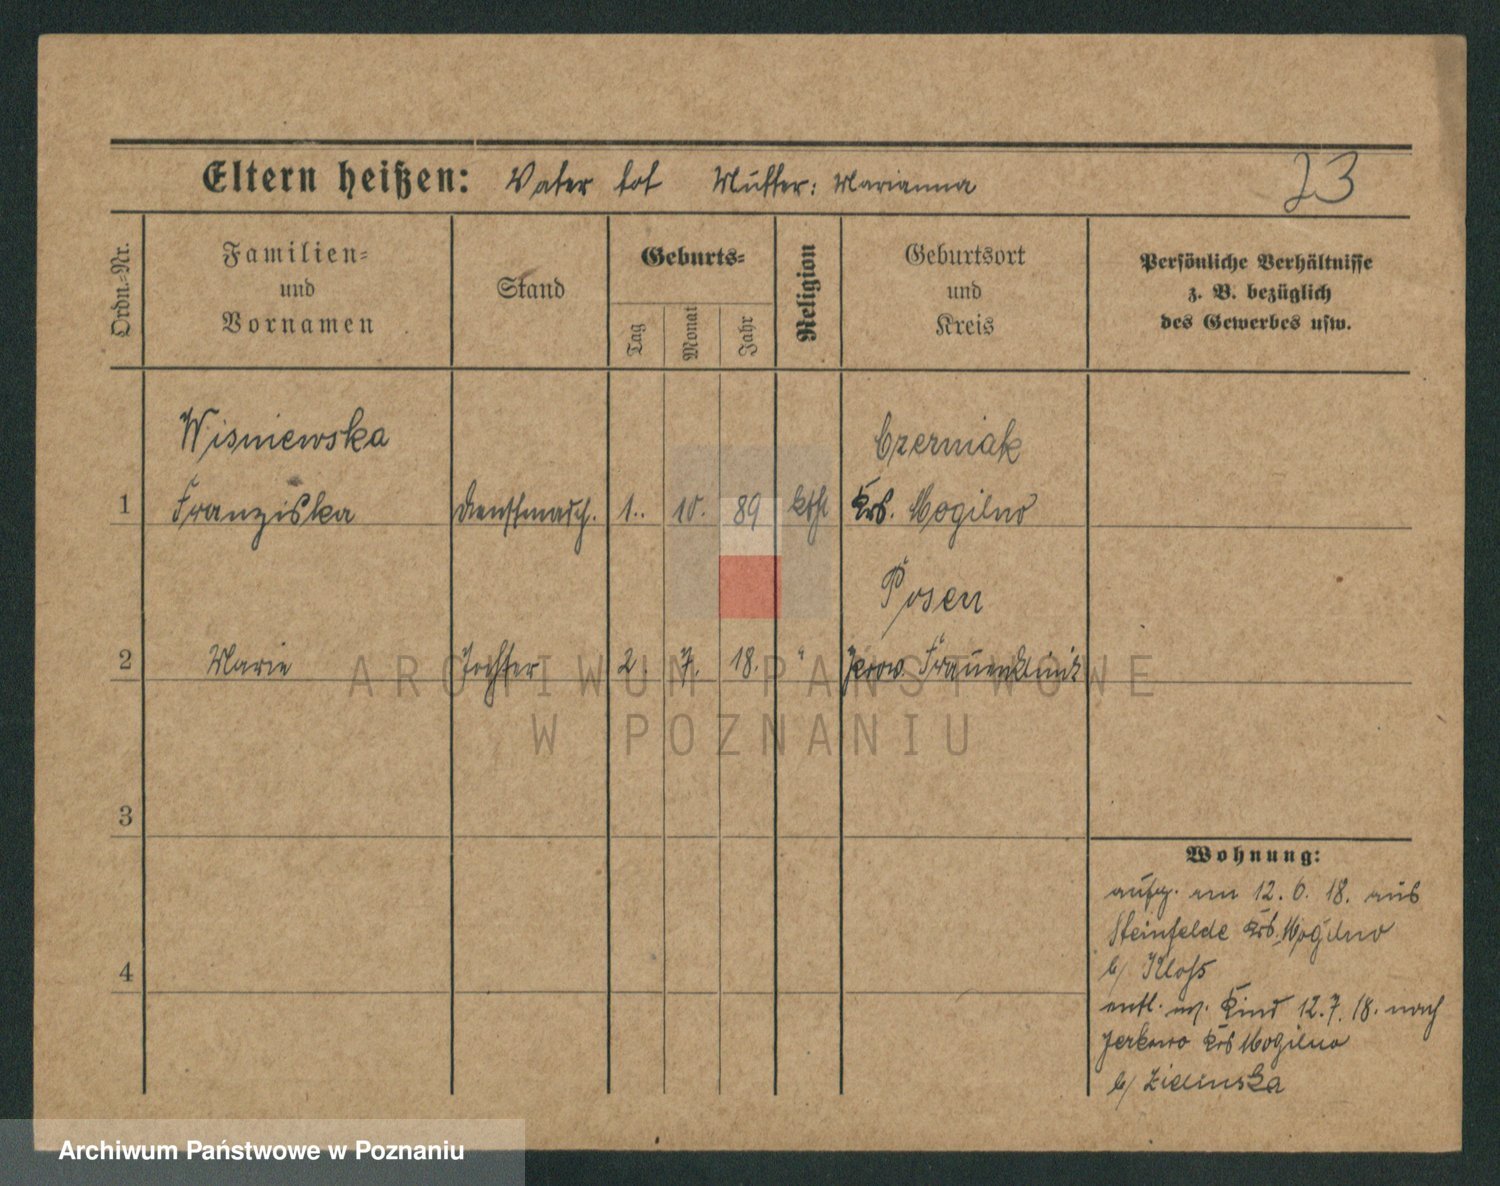 Eltern heißen: Vater tot Mutter: Marianna
23
Ordn.-Nr.
Familien-
und
Vornamen
Stand
Geburts-
Tag
Monat
Jahr
Religion
Geburtsort
und
Kreis
Persönliche Verhältnisse
z. B. bezüglich
des Gewerbes usw.
Wisniewska
Czerniak
1 Franziska Dienstmädch. 1. 10. 89 kthl Krs. Mogilno
Posen
2 Marie Tochter 2. 7. 18. " Prov. Frauenklinik
ARCHIWUM PAŃSTWOWE
W POZNANIU
3
4
Wohnung:
aufg. am 12. 6. 18. aus
Steinfelde Krs. Mogilno
b/ Kloss
entl. m. Kind 12. 7. 18. nach
Jerkowo Krs Mogilno
b/ Zielinska
Archiwum Państwowe w Poznaniu